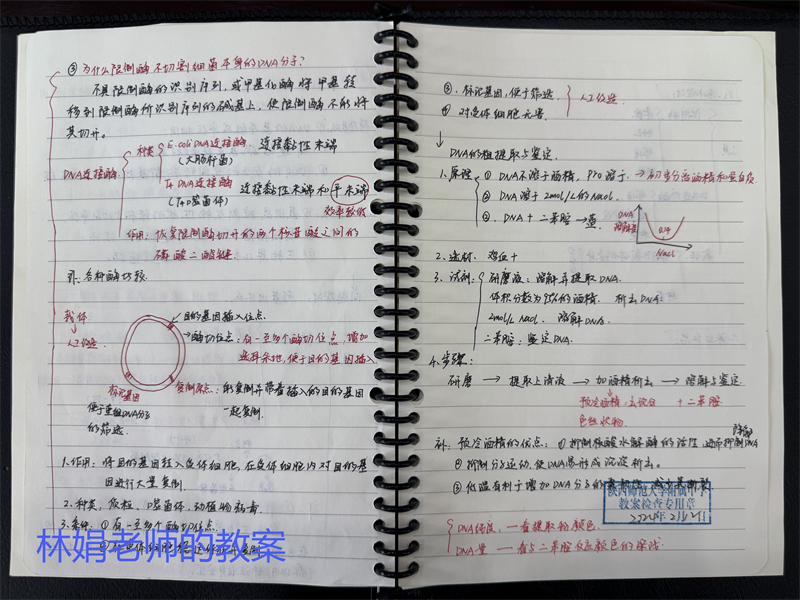 ③ 为什么限制酶不切割细菌本身的DNA分子?
不具限制酶的识别序列, 或甲基化酶将甲基转
移到限制酶所识别序列的碱基上, 使限制酶不能将
其切开。
DNA连接酶
种类
E·coli DNA连接酶 连接黏性末端
(大肠杆菌)
T4 DNA连接酶 连接黏性末端和平末端
(T4噬菌体)
效率较低
作用: 恢复限制酶切开的两个核苷酸之间的
磷酸二酯键
补: 各种酶比较
载体
人工改造
目的基因插入位点
酶切位点: 有一至多个酶切位点, 增加
选择余地, 便于目的基因插入
标记基因
便于重组DNA分子
的筛选
复制原点: 能复制并带着插入的目的基因
一起复制
1.作用: 将目的基因转入受体细胞, 在受体细胞内对目的基
因进行大量复制.
2.种类: 质粒, 噬菌体, 动植物病毒
3.条件: ① 有一至多个酶切位点
③. 标记基因, 便于筛选
④ 对受体细胞无害
人工改造
DNA的粗提取与鉴定
1.原理
① DNA不溶于酒精, Pro溶于.
② DNA溶于2mol/L的NaCl.
③. DNA + 二苯胺 → 蓝.
DNA
溶解度
0.14
NaCl
2.选材:
3.试剂:
研磨液: 溶解并提取DNA.
体积分数为95%的酒精. 析出DNA
2mol/L NaCl. 溶解DNA.
二苯胺: 鉴定DNA.
4.步骤:
研磨 → 提取上清液 → 加酒精析出 → 溶解与鉴定
预冷酒精,
+ 二苯胺
补: 预冷酒精的优点: ① 抑制核酸水解酶的活性, 进而抑制DNA
降解
② 抑制分子运动, 使DNA易形成沉淀析出。
③ 低温有利于增加DNA分子的
陕西师范大学附属中学
教案检查专用章
DNA纯度: 一看提取物颜色.
DNA量 — 看与二苯胺反应颜色的深浅.
林娟老师的教案